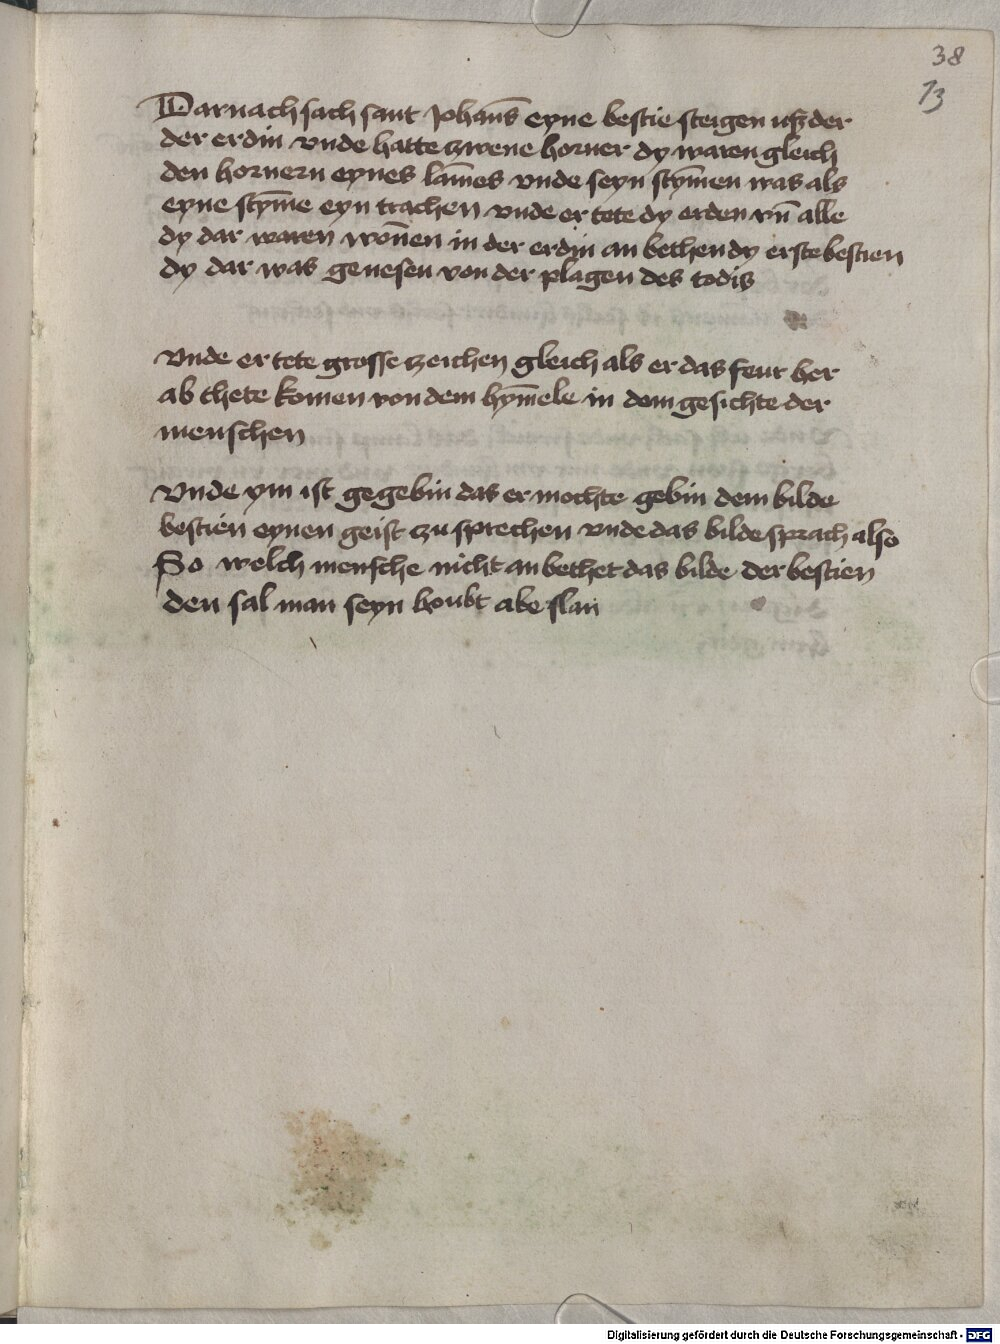 38
13
Darnach sach sant Johañs eyne bestie steigen uß der
der erdin vnde hatte zwene horner dy waren gleich
den hornern eynes lām̄es vnde seyn stym̄en was als
eyne stym̄e eyn trachen vnde er tete dy erden vn̄ alle
dy dar waren won̄en in der erdin an bethen dy erste bestien
dy dar was genesen von der plagen des todis
vnde er tete grosse zeichen gleich als er das feur her
ab thete komen von dem hym̄ele in dem gesichte der
menschen
vnde ym ist gegebin das er mochte gebin dem bilde
bestien eynen geist zu sprechen vnde das bilde sprach also
So welch mensche nicht an bethet das bilde der bestien
den sal man seyn houbt abe slan
Digitalisierung gefördert durch die Deutsche Forschungsgemeinschaft - DFG